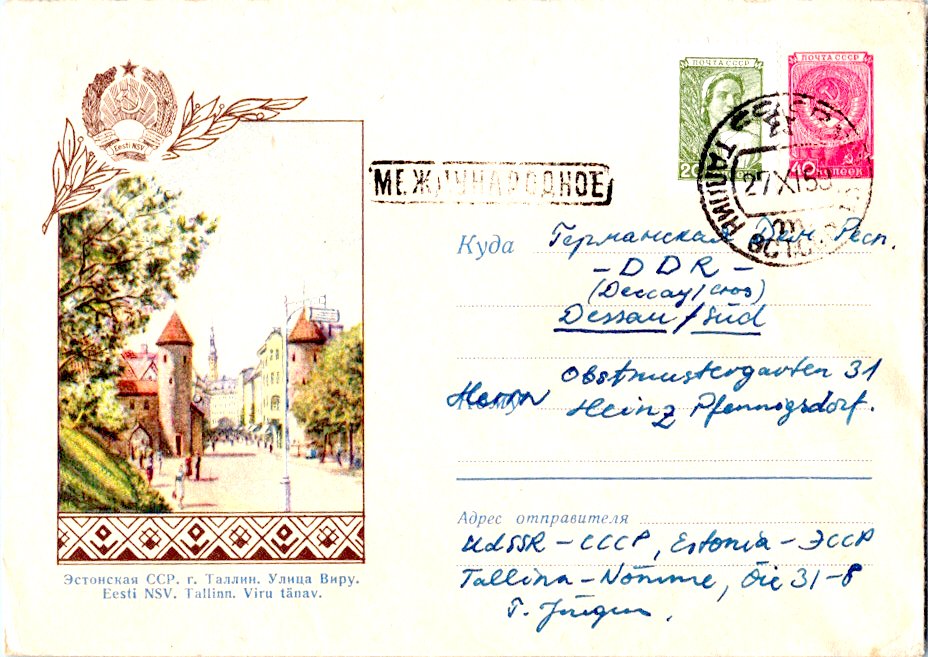 Eesti NSV
ПОЧТА СССР
20
ПОЧТА СССР
40 КОПЕЕК
МЕЖДУНАРОДНОЕ
ТАЛЛИН
27 XI 58
Куда Германская Дем Респ.
- DDR -
(Dessau/
Dessau/Süd
Obstmustergarten 31
Кому Herrn Heinz Pfennigsdorf.
Адрес отправителя
UdSSR - СССР, Estonia - ЭССР
Tallinn - Nõmme, Õie 31-8
T. Jürgen,
Эстонская ССР. г. Таллин. Улица Виру.
Eesti NSV. Tallinn. Viru tänav.